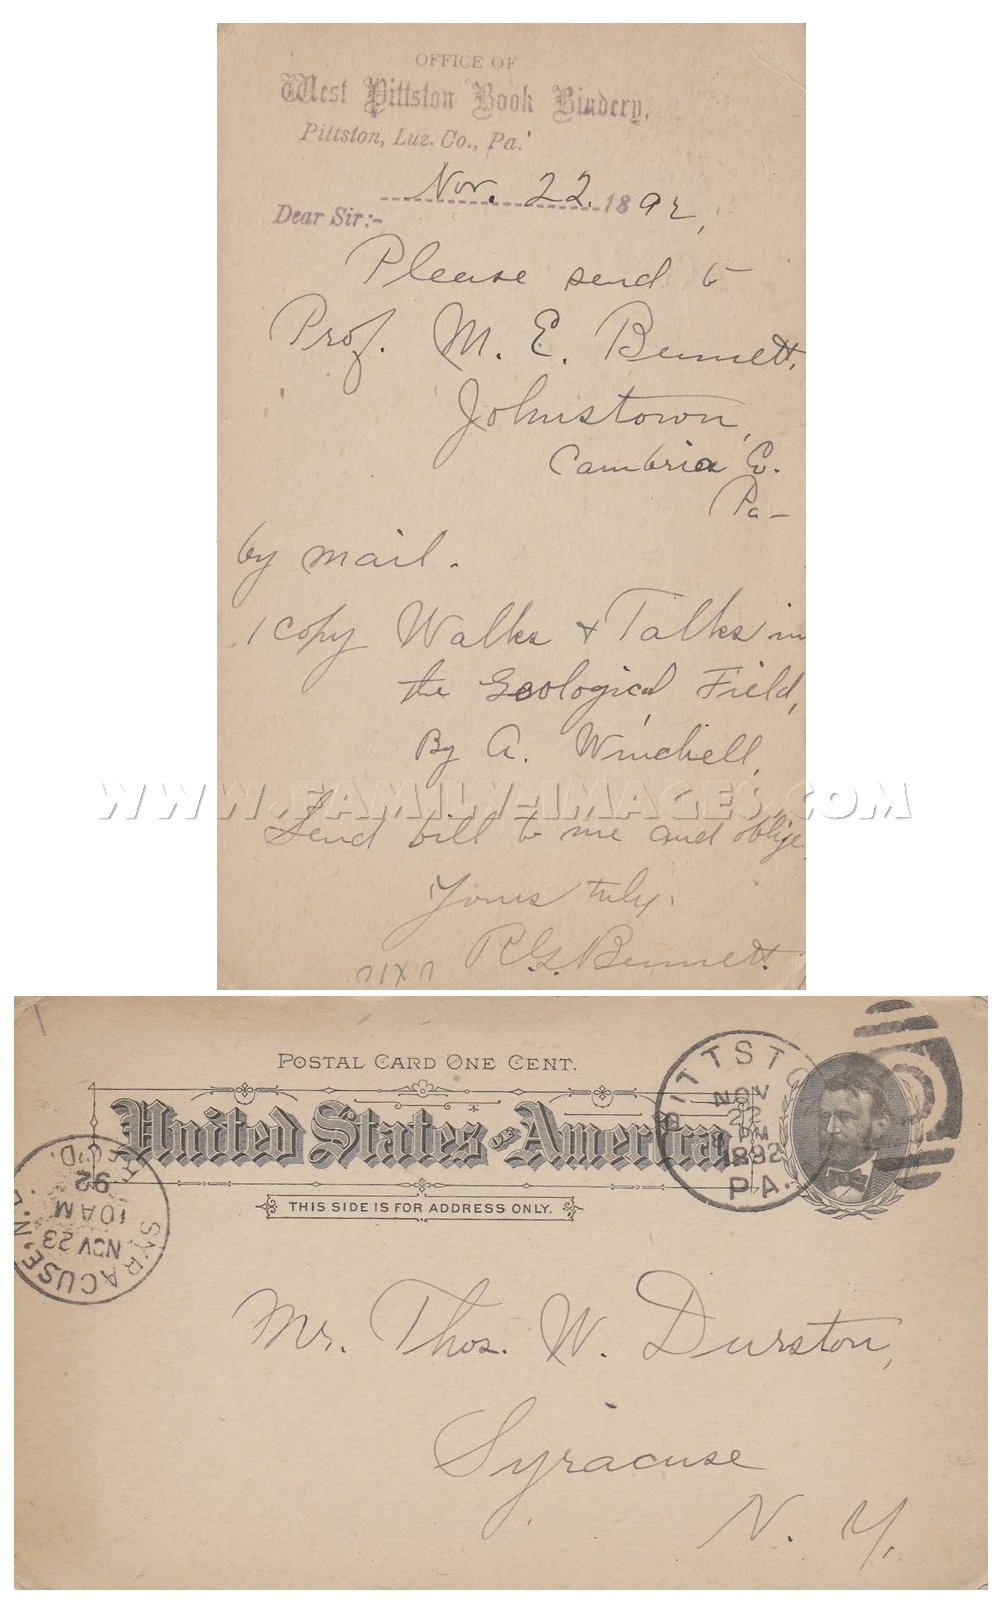 OFFICE OF
West Pittston Book Bindery,
Pittston, Luz. Co., Pa.
Nov. 22. 1892,
Dear Sir:-
Please send to
Prof. M. E. Bennett,
Johnstown,
Cambria Co.
Pa-
by mail.
1 copy Walks & Talks in
the Geological Field,
By A. Winchell,
WWW.FAMILY-IMAGES.COM
Send bill to me and oblige
Yours truly,
R. G. Bennett.
POSTAL CARD ONE CENT.
United States of America
THIS SIDE IS FOR ADDRESS ONLY.
PITTSTO
NOV
22
PM
1892
PA.
SYRACUSE, N.Y.
NOV 23
10 AM
92
REC'D.
Mr. Thos. W. Durston,
Syracuse
N. Y.